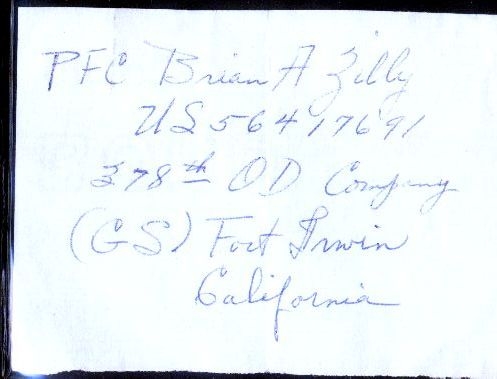 PFC Brian A Zilly
US 56417691
378th OD Company
(GS) Fort Irwin
California